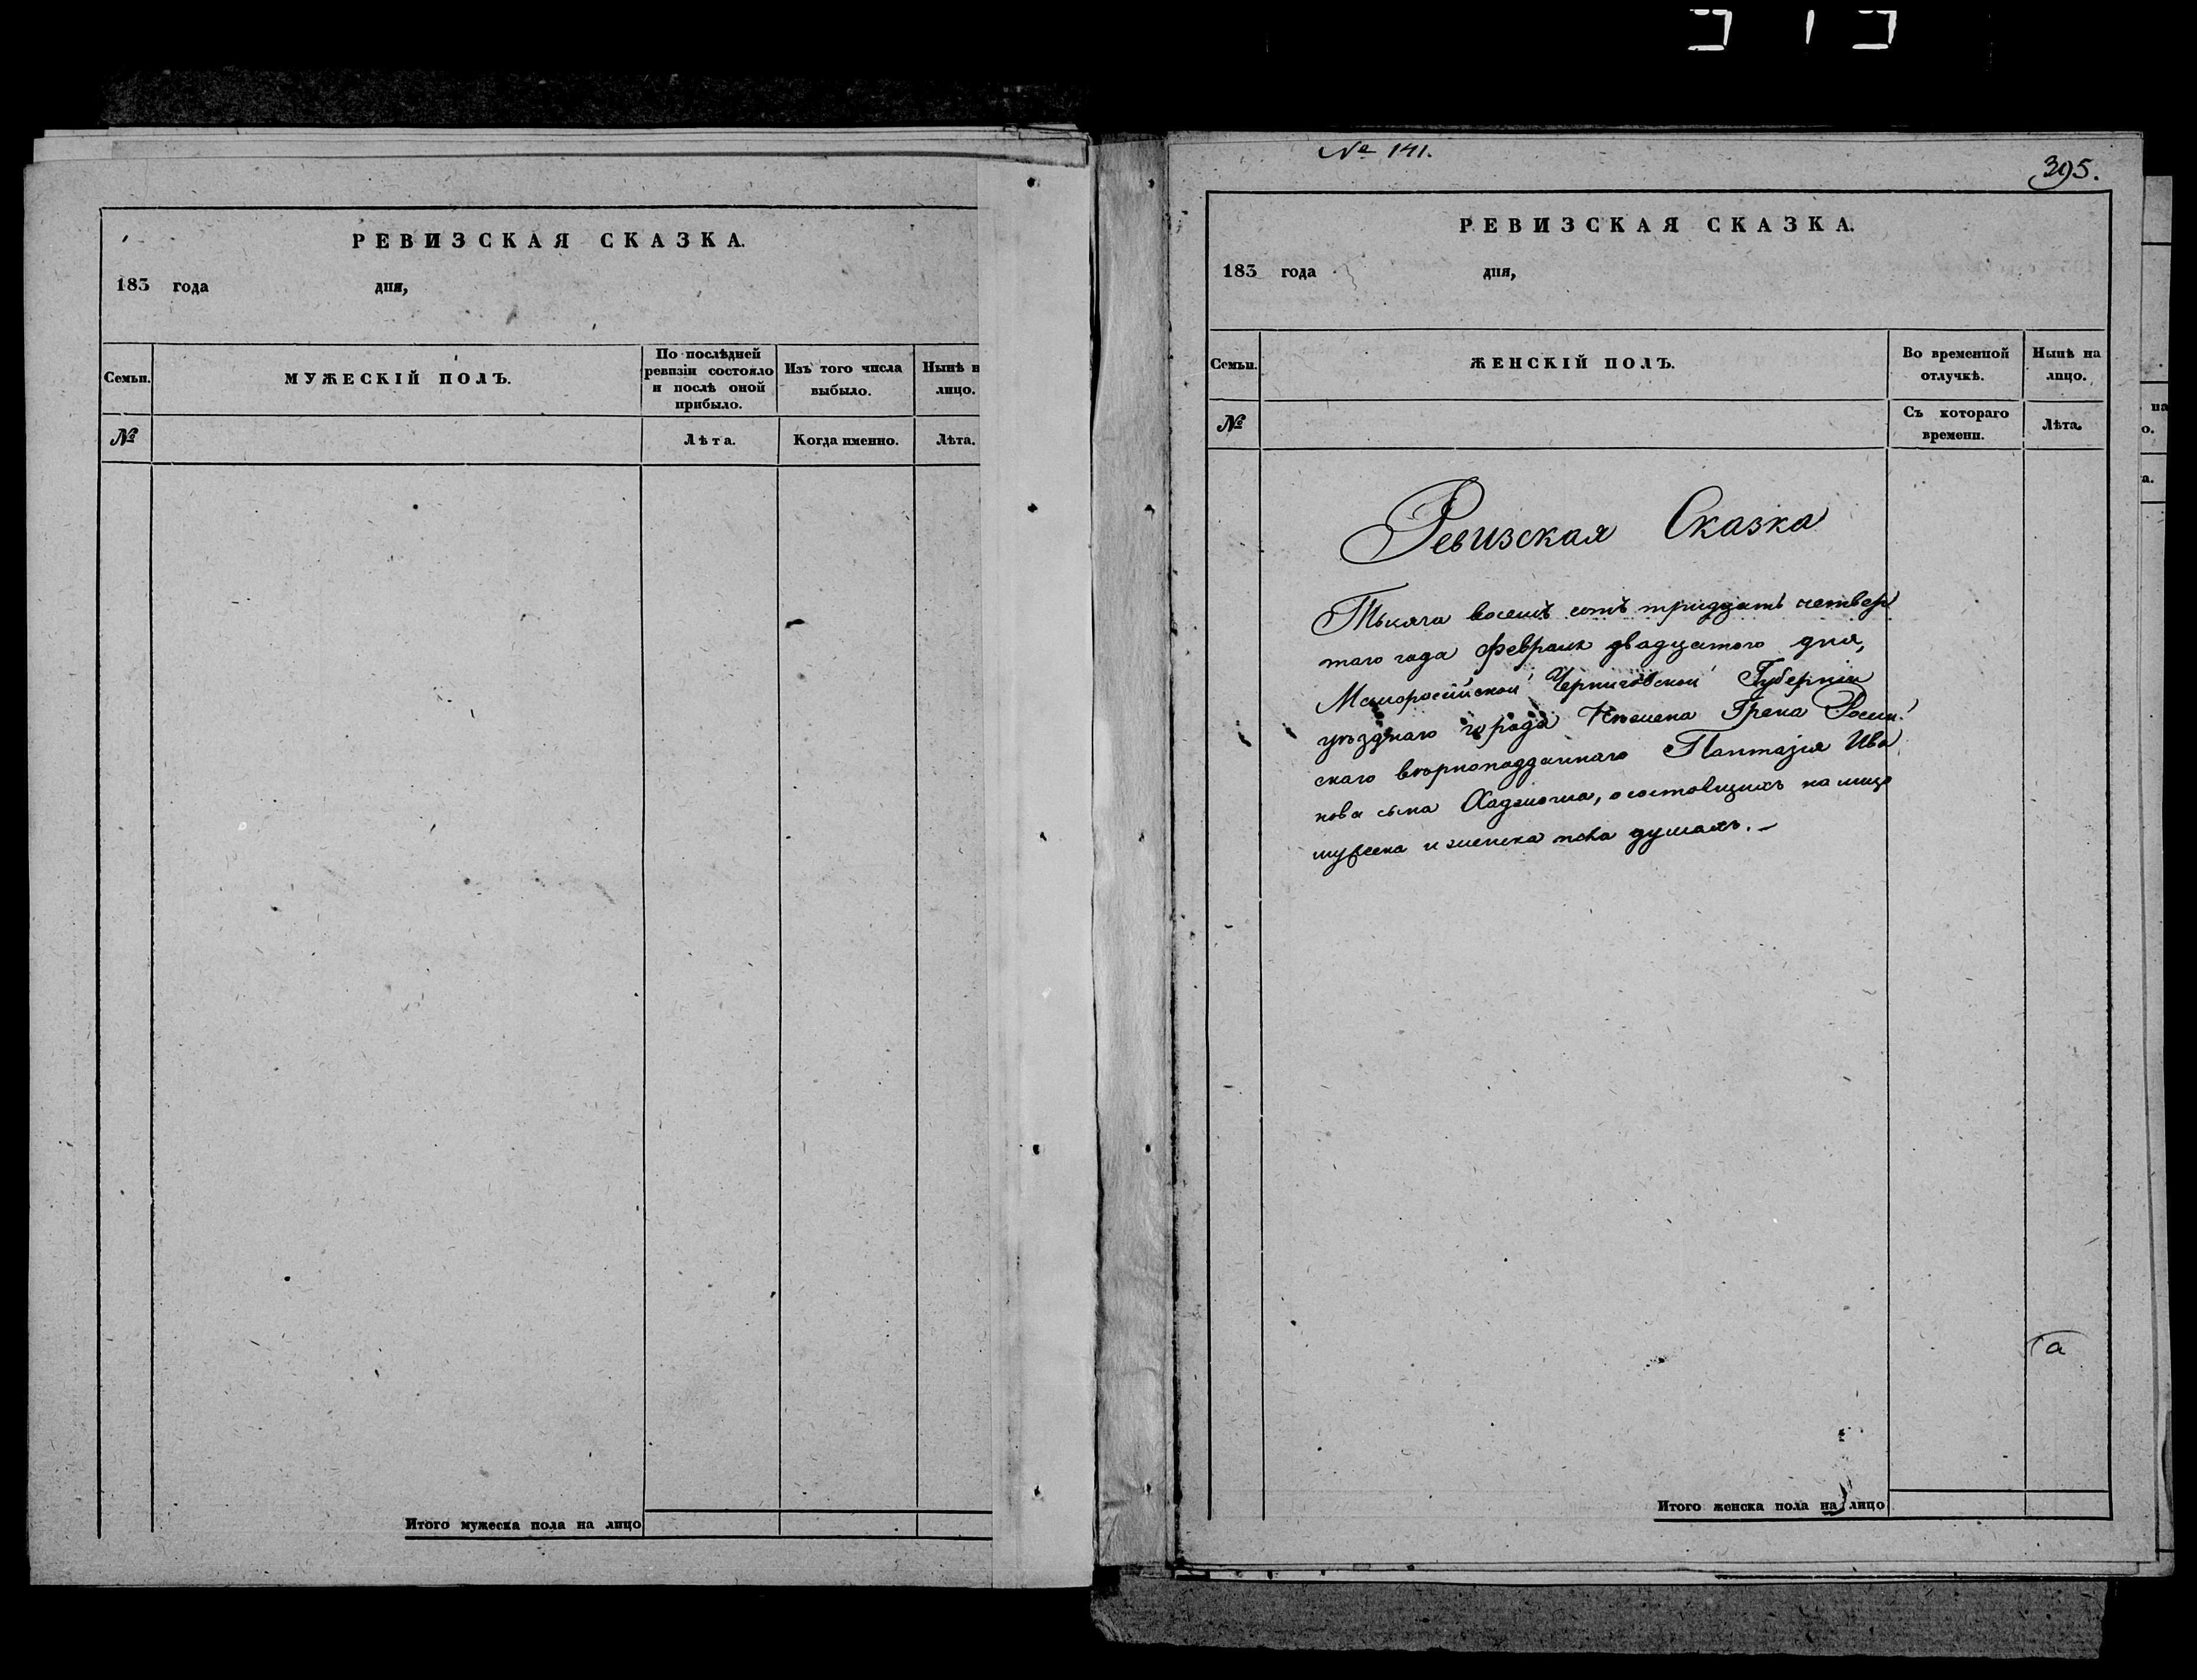 РЕВИЗСКАЯ СКАЗКА.
183 года дня,
Семьи.
МУЖЕСКІЙ ПОЛЪ.
По послѣдней ревизіи состояло и послѣ оной прибыло.
Изъ того числа выбыло.
Нынѣ н
лицо.
№
Лѣта.
Когда именно.
Лѣта.
Итого мужеска пола на лицо
№ 141.
395.
РЕВИЗСКАЯ СКАЗКА.
183 года дня,
Семьи.
ЖЕНСКІЙ ПОЛЪ.
Во временной отлучкѣ.
Нынѣ на лицо.
№
Съ котораго времени.
Лѣта.
Ревизская Сказка
Тысяча восемъ сотъ тридцать четвер
таго года февраля двадцатого дня,
Малоросійской Черниговской Губерніи
уѣзднаго города Нѣжена Грека Росій
скаго вѣрноподданнаго Пантазія Ива
нова сына, о состоящихъ на лицо
мужеска и женска пола душахъ.
а
Итого женска пола на лицо
на
о.
а.